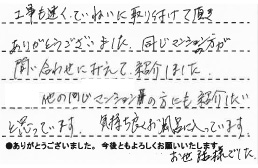 工事も速く、ていねいに取り付けて頂き
ありがとうございました。同じマンションの方が
問い合わせに来て紹介しました。
他の同じマンションの方にも紹介したい
と思っています。気持ち良くお風呂に入っています。
お世話様でした。
●ありがとうございました。今後ともよろしくお願いいたします